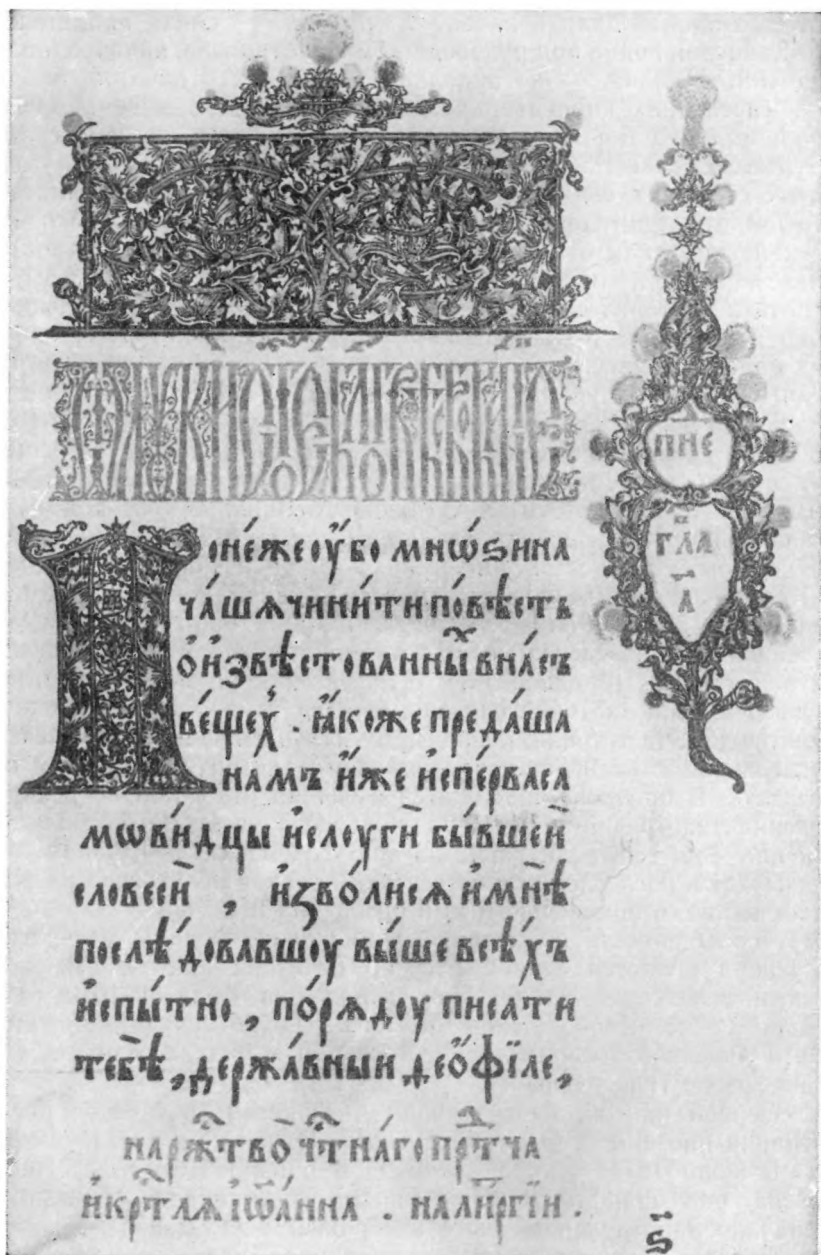 ПИС
ГЛА
А
Понеже оубо мнѡѕи на
чаша чинити повѣсть
о извѣстованныⷯ внасъ
вещеⷯ. ꙗкоже предаша
намъ иже исперва са
мовидцы ислоуги бывшеи
словеси, изволися имнѣ
послѣдовавшоу выше всѣхъ
испытно, порядоу писати
тебѣ, державныи деофіле,
нарⷤтво чⷭтнаго прⷣтча
икрⷭтлѧ іѡанна . налиⷮргіи .
ѕ